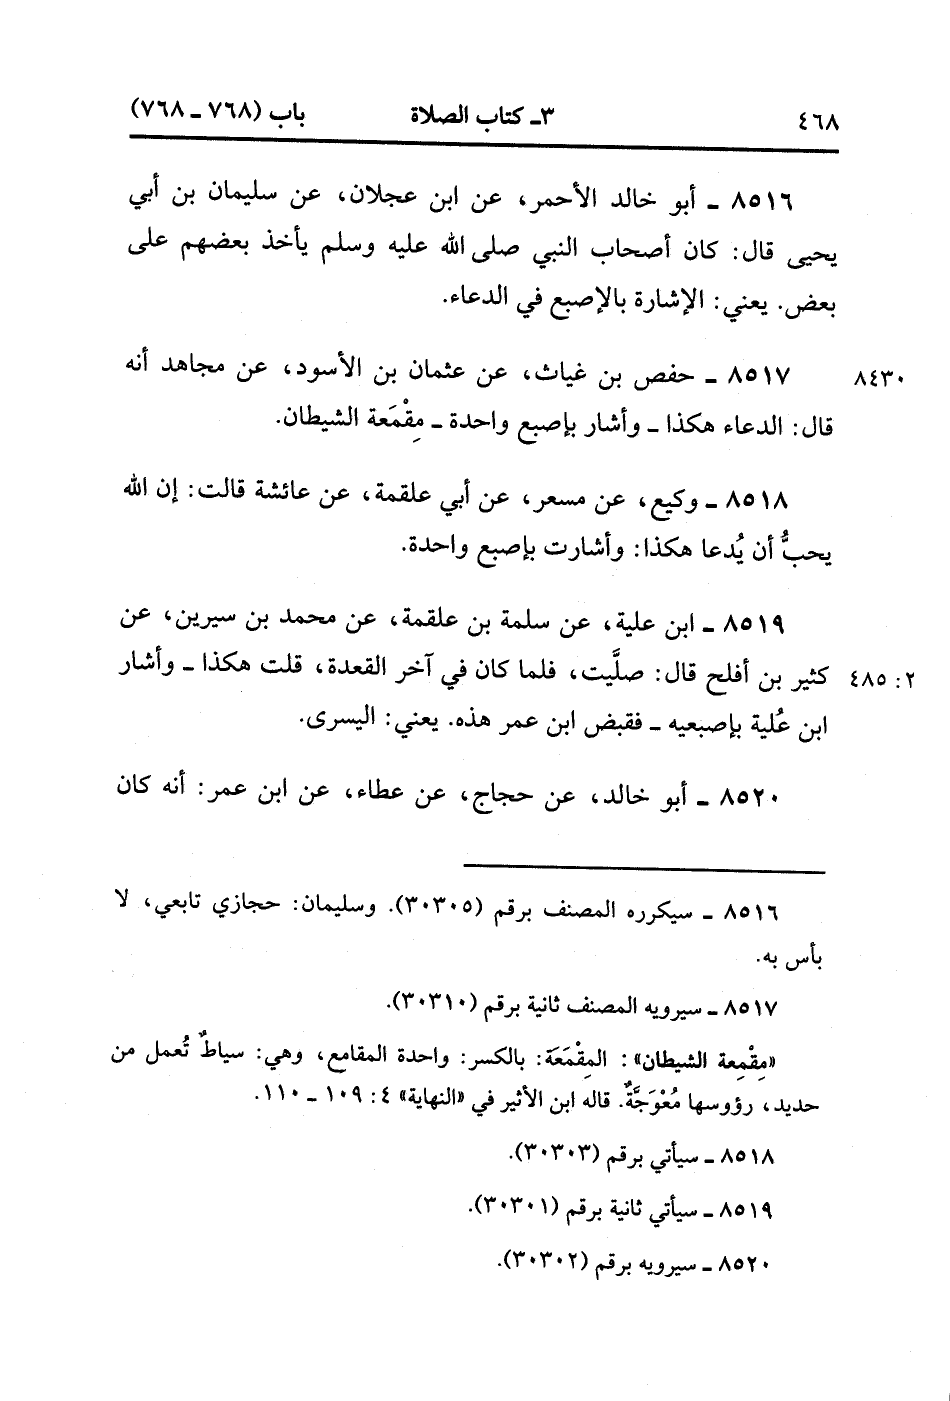 ٤٦٨ ٣ـ كتاب الصلاة باب (٧٦٨ ـ ٧٦٨)
٨٥١٦ ـ أبو خالد الأحمر، عن ابن عجلان، عن سليمان بن أبي
يحيى قال: كان أصحاب النبي صلى الله عليه وسلم يأخذ بعضهم على
بعض. يعني: الإشارة بالإصبع في الدعاء.
٨٤٣٠ ٨٥١٧ ـ حفص بن غياث، عن عثمان بن الأسود، عن مجاهد أنه
قال: الدعاء هكذا ـ وأشار بإصبع واحدة ـ مِقْمَعة الشيطان.
٨٥١٨ ـ وكيع، عن مسعر، عن أبي علقمة، عن عائشة قالت: إن الله
يحبُّ أن يُدعا هكذا: وأشارت بإصبع واحدة.
٨٥١٩ ـ ابن علية، عن سلمة بن علقمة، عن محمد بن سيرين، عن
٢: ٤٨٥ كثير بن أفلح قال: صلَّيت، فلما كان في آخر القعدة، قلت هكذا ـ وأشار
ابن عُلية بإصبعيه ـ فقبض ابن عمر هذه. يعني: اليسرى.
٨٥٢٠ ـ أبو خالد، عن حجاج، عن عطاء، عن ابن عمر: أنه كان
٨٥١٦ ـ سيكرره المصنف برقم (٣٠٣٠٥). وسليمان: حجازي تابعي، لا
بأس به.
٨٥١٧ ـ سيرويه المصنف ثانية برقم (٣٠٣١٠).
«مِقْمِعة الشيطان»: المِقْمَعَة: بالكسر: واحدة المقامع، وهي: سياطٌ تُعمل من
حديد، رؤوسها مُعْوَجَّةٌ. قاله ابن الأثير في «النهاية» ٤: ١٠٩ ـ ١١٠.
٨٥١٨ ـ سيأتي برقم (٣٠٣٠٣).
٨٥١٩ ـ سيأتي ثانية برقم (٣٠٣٠١).
٨٥٢٠ ـ سيرويه برقم (٣٠٣٠٢).